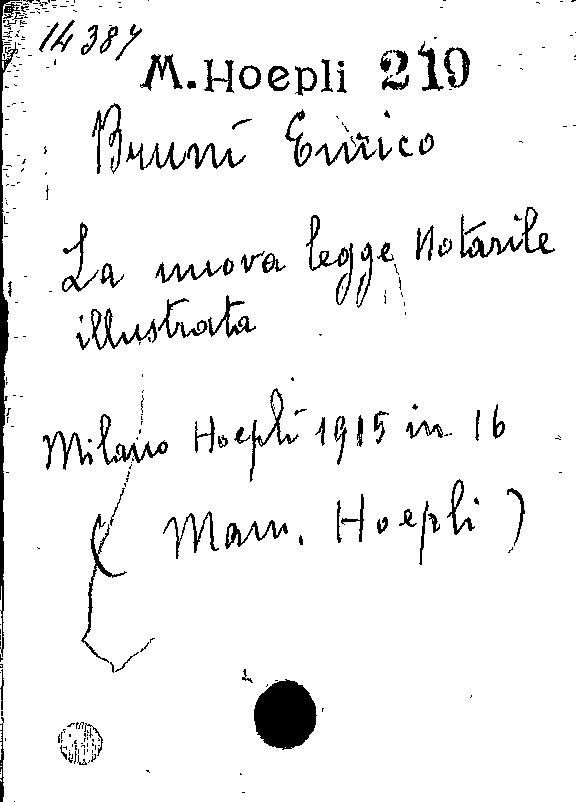 14384
M. Hoepli 219
Bruni Enrico
La nuova legge Notarile
illustrata
Milano Hoepli 1915 in 16
( Man. Hoepli )